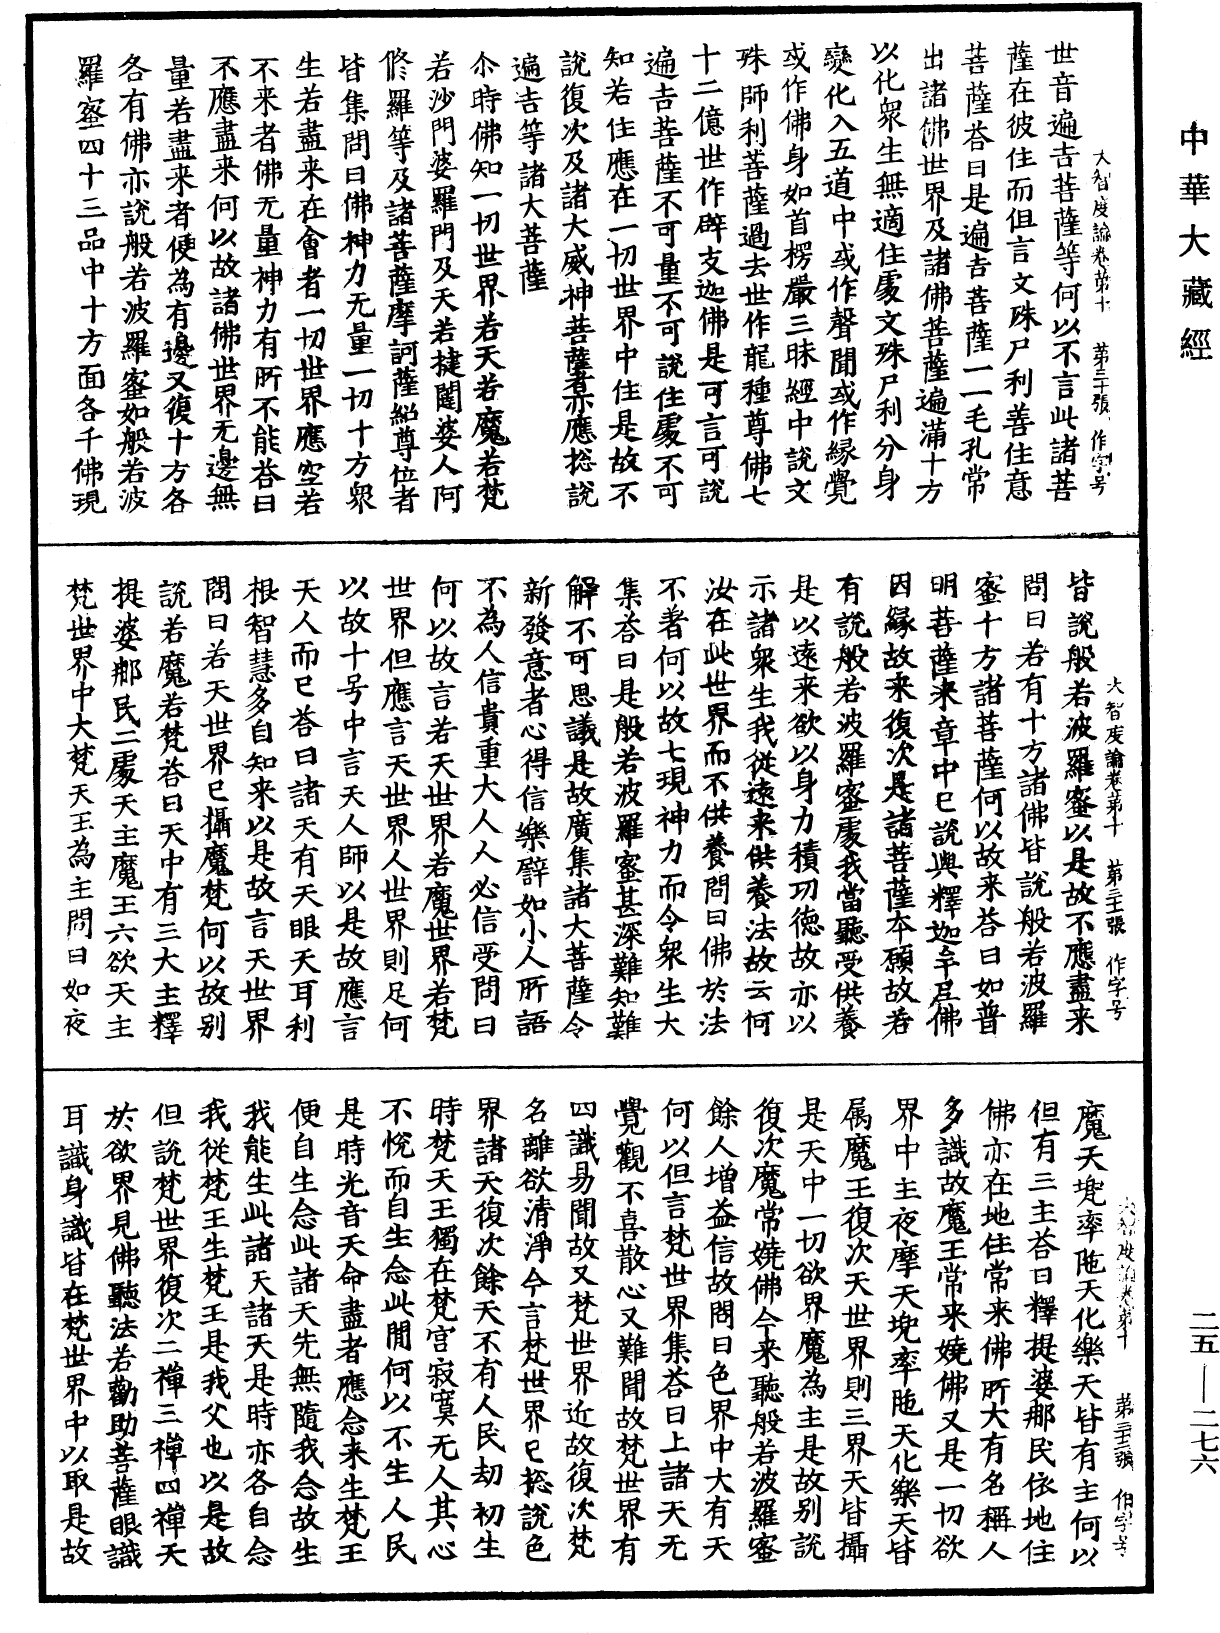 中華大藏經
大智度論卷第十　第三十張　作字号
世音遍吉菩薩等何以不言此諸菩
薩在彼住而但言文殊尸利善住意
菩薩荅曰是遍吉菩薩一一毛孔常
出諸佛世界及諸佛菩薩遍滿十方
以化衆生無適住處文殊尸利分身
變化入五道中或作聲聞或作緣覺
或作佛身如首楞嚴三昧經中說文
殊師利菩薩過去世作龍種尊佛七
十二億世作辟支迦佛是可言可說
遍吉菩薩不可量不可說住處不可
知若住應在一切世界中住是故不
說復次及諸大威神菩薩者亦應捴說
遍吉等諸大菩薩
尒時佛知一切世界若天若魔若梵
若沙門婆羅門及天若揵闥婆人阿
修羅等及諸菩薩摩訶薩紹尊位者
皆集問曰佛神力无量一切十方衆
生若盡来在會者一切世界應空若
不来者佛无量神力有所不能荅曰
不應盡来何以故諸佛世界无邊無
量若盡来者便為有邊又復十方各
各有佛亦說般若波羅蜜如般若波
羅蜜四十三品中十方面各千佛現
大智度論卷第十　第三十一張　作字号
皆說般若波羅蜜以是故不應盡来
問曰若有十方諸佛皆說般若波羅
蜜十方諸菩薩何以故来荅曰如普
明菩薩来章中已說與釋迦牟尼佛
因緣故来復次是諸菩薩本願故若
有說般若波羅蜜處我當聽受供養
是以遠来欲以身力積功德故亦以
示諸衆生我從遠来供養法故云何
汝在此世界而不供養問曰佛於法
不著何以故七現神力而令衆生大
集荅曰是般若波羅蜜甚深難知難
解不可思議是故廣集諸大菩薩令
新發意者心得信樂譬如小人所語
不為人信貴重大人人必信受問曰
何以故言若天世界若魔世界若梵
世界但應言天世界人世界則足何
以故十号中言天人師以是故應言
天人而已荅曰諸天有天眼天耳利
根智慧多自知来以是故言天世界
問曰若天世界已攝魔梵何以故別
說若魔若梵荅曰天中有三大主釋
提婆那民二處天主魔王六欲天主
梵世界中大梵天王為主問曰如夜
大智度論卷第十　第三十二張　作字号
魔天兜率陁天化樂天皆有主何以
但有三主荅曰釋提婆那民依地住
佛亦在地住常来佛所大有名稱人
多識故魔王常来嬈佛又是一切欲
界中主夜摩天兜率陁天化樂天皆
属魔王復次天世界則三界天皆攝
是天中一切欲界魔為主是故別說
復次魔常嬈佛今来聽般若波羅蜜
餘人增益信故問曰色界中大有天
何以但言梵世界集荅曰上諸天无
覺觀不喜散心又難聞故梵世界有
四識易聞故又梵世界近故復次梵
名離欲清淨今言梵世界已捴說色
界諸天復次餘天不有人民劫初生
時梵天王獨在梵宫寂寞无人其心
不悅而自生念此間何以不生人民
是時光音天命盡者應念来生梵王
便自生念此諸天先無隨我念故生
我能生此諸天諸天是時亦各自念
我從梵王生梵王是我父也以是故
但說梵世界復次二禪三禪四禪天
於欲界見佛聽法若勸助菩薩眼識
耳識身識皆在梵世界中以取是故
二五—二七六